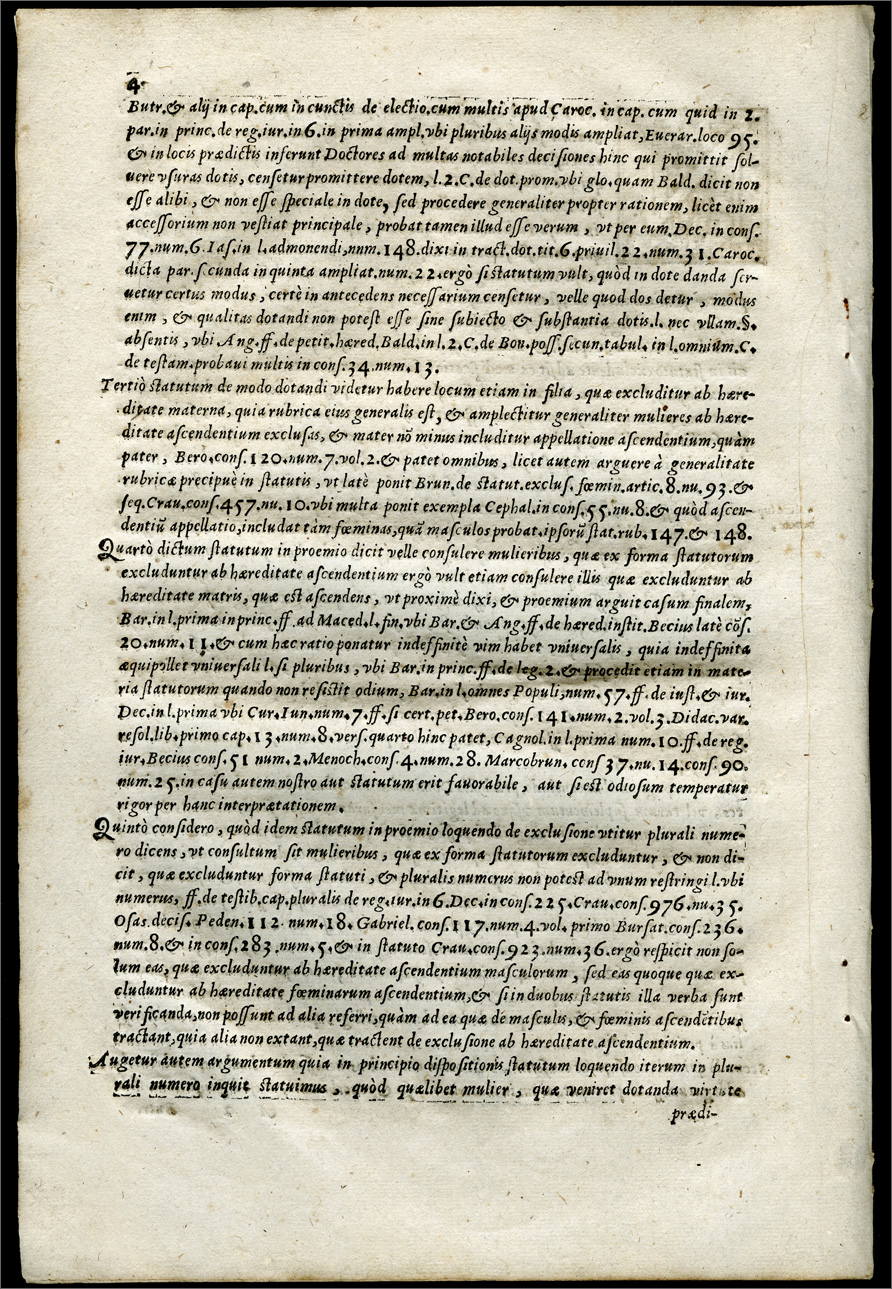 4
Butr. & alij in cap. cum in cunctis de electio. cum multis apud Caroc. in cap. cum quid in 2.
par. in princ. de reg. iur. in 6. in prima ampl. vbi pluribus alijs modis ampliat, Euerar. loco 95.
& in locis prædictis inferunt Doctores ad multas notabiles decisiones hinc qui promittit sol-
uere vsuras dotis, censetur promittere dotem, l. 2. C. de dot. prom. vbi glo. quam Bald. dicit non
esse alibi, & non esse speciale in dote, sed procedere generaliter propter rationem, licèt enim
accessorium non vestiat principale, probat tamen illud esse verum, vt per eum. Dec. in cons.
77. num. 6. Ias. in l. admonendi, num. 148. dixi in tract. dot. tit. 6. priuil. 22. num. 31. Caroc.
dicta par. s.cunda in quinta ampliat. num. 22. ergò si statutum vult, quòd in dote danda ser-
uetur certus modus, certè in antecedens necessarium censetur, velle quod dos detur, modus
enim, & qualitas dotandi non potest esse sine subiecto & substantia dotis. l. nec vllam. §.
absentis, vbi Ang. ff. de petit. hæred. Bald. in l. 2. C. de Bon. poss. secun. tabul. in l. omnium. C.
de testam. probaui multis in cons. 34. num. 13.
Tertiò statutum de modo dotandi videtur habere locum etiam in filia, quæ excluditur ab hære-
ditate materna, quia rubrica eius generalis est, & amplectitur generaliter mulieres ab hære-
ditate ascendentium exclusas, & mater nō minus includitur appellatione ascendentium, quàm
pater, Bero. cons. 120. num. 7. vol. 2. & patet omnibus, licet autem arguere à generalitate
rubricæ præcipuè in statutis, vt latè ponit Brun. de statut. exclus. fœmin. artic. 8. nu. 93. &
seq. Crau. cons. 457. nu. 10. vbi multa ponit exempla Cephal. in cons. 55. nu. 8. & quòd ascen-
dentiū appellatio, includat tàm fœminas, quā masculos probat. ipsorū stat. rub. 147. & 148.
Quartò dictum statutum in proemio dicit velle consulere mulieribus, quæ ex forma statutorum
excluduntur ab hæreditate ascendentium ergò vult etiam consulere illis quæ excluduntur ab
hæreditate matris, quæ est ascendens, vt proximè dixi, & proemium arguit casum finalem,
Bar. in l. prima in princ. ff. ad Maced. l. fin. vbi Bar. & Ang. ff. de hæred. instit. Becius latè cōs.
20. num. 11. & cum hæc ratio ponatur indeffinitè vim habet vniuersalis, quia indeffinita
æquipollet vniuersali l. si pluribus, vbi Bar. in princ. ff. de leg. 2. & procedit etiam in mate-
ria statutorum quando non resistit odium, Bar. in l. omnes Populi, num. 57. ff. de iust. & iur.
Dec. in l. prima vbi Cur. Iun. num. 7. ff. si cert. pet. Bero. cons. 141. num. 2. vol. 3. Didac. var.
resol. lib. primo cap. 13. num. 8. vers. quarto hinc patet, Cagnol. in l. prima num. 10. ff. de reg.
iur. Becius cons. 51 num. 2. Menoch. cons. 4. num. 28. Marcobrun. cons 37. nu. 14. cons. 90.
num. 25. in casu autem nostro aut statutum erit fauorabile, aut si est odiosum temperatur
rigor per hanc interprætationem.
Quintò considero, quòd idem statutum in proemio loquendo de exclusione vtitur plurali nume-
ro dicens, vt consultum sit mulieribus, quæ ex forma statutorum excluduntur, & non di-
cit, quæ excluduntur forma statuti, & pluralis numerus non potest ad vnum restringi l. vbi
numerus, ff. de testib. cap. pluralis de reg. iur. in 6. Dec. in cons. 225. Crau. cons. 976. nu. 35.
Osas. decis. Peden. 112. num. 18. Gabriel. cons. 117. num. 4. vol. primo Bursat. cons. 236.
num. 8. & in cons. 283. num. 5. & in statuto Crau. cons. 923. num. 36. ergò respicit non so-
lum eas, quæ excluduntur ab hæreditate ascendentium masculorum, sed eas quoque quæ ex-
cluduntur ab hæreditate fœminarum ascendentium, & si in duobus statutis illa verba sunt
verificanda, non possunt ad alia referri, quàm ad ea quæ de masculis, & fœminis ascendētibus
tractant, quia alia non extant, quæ tractent de exclusione ab hæreditate ascendentium.
Augetur autem argumentum quia in principio dispositionis statutum loquendo iterum in plu-
rali numero inquit statuimus, quòd quælibet mulier, quæ veniret dotanda virtute
prædi-